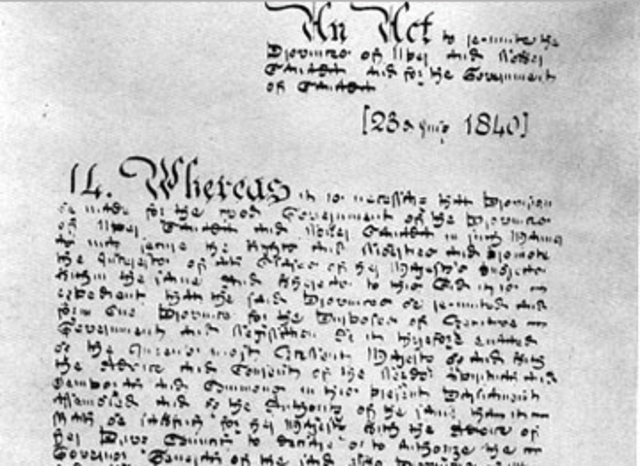 An Act to re-unite the
Provinces of Upper and Lower
Canada and for the Government
of Canada
[23d July 1840]
14. Whereas it is necessary that Provision
be made for the good Government of the Provinces
of Upper Canada and Lower Canada in such Manner
as may secure the Rights and Liberties and promote
the Interests of all Classes of Her Majesty's Subjects
within the same And whereas to this End it is
expedient that the said Provinces be re-united and
form One Province for the Purposes of Executive
Government and Legislation Be it therefore enacted
by the Queen's most Excellent Majesty by and with
the Advice and Consent of the Lords Spiritual and
Temporal and Commons in this present Parliament
Assembled and by the Authority of the same That it
shall be lawful for Her Majesty with the Advice of
Her Privy Council to declare or to Authorize the
Governor General of the said